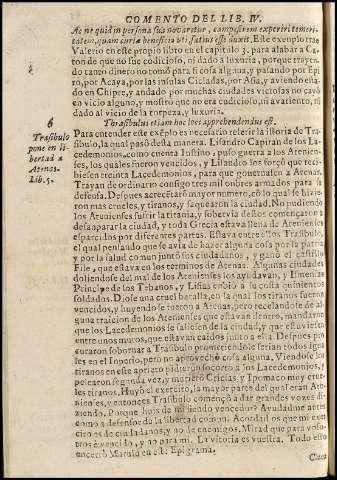 COMENTO DEL LIB. IV.
Ac ne quid in persona sua novaretur, campestrem experiri temeri-
tatem, quam curia beneficio uti, satius esse duxit. Este exemplo trae
Valerio en este propio libro en el capitulo 3. para alabar a Ca-
ton de que no fue codicioso, ni dado a luxuria, porque trayen-
do tanto dinero no tomò para si cosa alguna, y pasando por Epi-
ro, por Acaya, por las insulas Cicladas, por Asia, y aviendo esta-
do en Chipre, y andado por muchas ciudades vitosas no cayò
en vicio alguno, y mostro que no era codicioso, ni avariento, ni
dado al vicio de la torpeza, y luxuria.
Thrasibulus etiam hoc loci apprehendendus est.
6
Trasibulo
pone en li-
bertad a
Atenas.
Lib. 5.
Para entender este exẽplo es necesario referir la istoria de Tra-
sibulo, la qual pasò desta manera. Lisandro Capitan de los La-
cedemonios, como cuenta Iustino, puso guerra a los Atenien-
ses, los quales fueron vencidos, y Lisandro los forçò que reci-
biesen treinta Lacedemonios, para que governasen a Atenas.
Trayan de ordinario consigo tres mil onbres armados para su
defensa. Despues acrecẽtarõ mayor numero, cõ lo qual se hizie-
ron mas crueles, y tiranos, y saquearon la ciudad. No pudiendo
los Atenienses sufrir la tirania, y sobervia destos començaron a
desanparar la ciudad, y toda Grecia estava llena de Atenienses
esparcidos por diferentes partes. Estava entre ellos Trasibulo,
el qual pensando que se avia de hazer alguna cosa por la patria,
y por la salud comun juntò sus ciudadanos, y ganò el castillo
File, que estava en los terminos de Atenas. Algunas ciudades
doliendose del mal de los Atenienses los ayudavan, y Ismenias
Principe de los Tebanos, y Lisias enbiò a su costa quinientos
soldados. Diose una cruel batalla, en la qual los tiranos fueron
vencidos, y huyendo se fueron a Atenas, pero recelandose de al-
guna traicion de los Atenienses que estavan dentro, mandaron
que los Lacedemonios se saliesen de la ciudad, y que estuviesen
entre unos muros, que estavan caidos junto a ella. Despues pro-
curaron sobornar a Trasibulo prometiendole serian todos igua-
les en el Inperio, pero no aprovechò cosa alguna. Viendose los
tiranos en este aprieto pidieron socorro a los Lacedemonios, y
pelearon segunda vez, y murierõ Cricias, y Ipomaco muy crue-
les tiranos. Huyò el exercito, la mayor parte del qual eran Ate-
nienses, y entonces Trasibulo començò a dar grandes vozes di-
ziendo. Porque huis de mi siendo vencedor? Ayudadme antes
como a defensor de la libertad comun. Acordaos que mi exer-
cito es de ciudadanos, y no de enemigos. Mirad que para voso-
tros è vencido, y no para mi. La vitoria es vuestra. Todo esto
encerrò Marulo en este Epigrama.